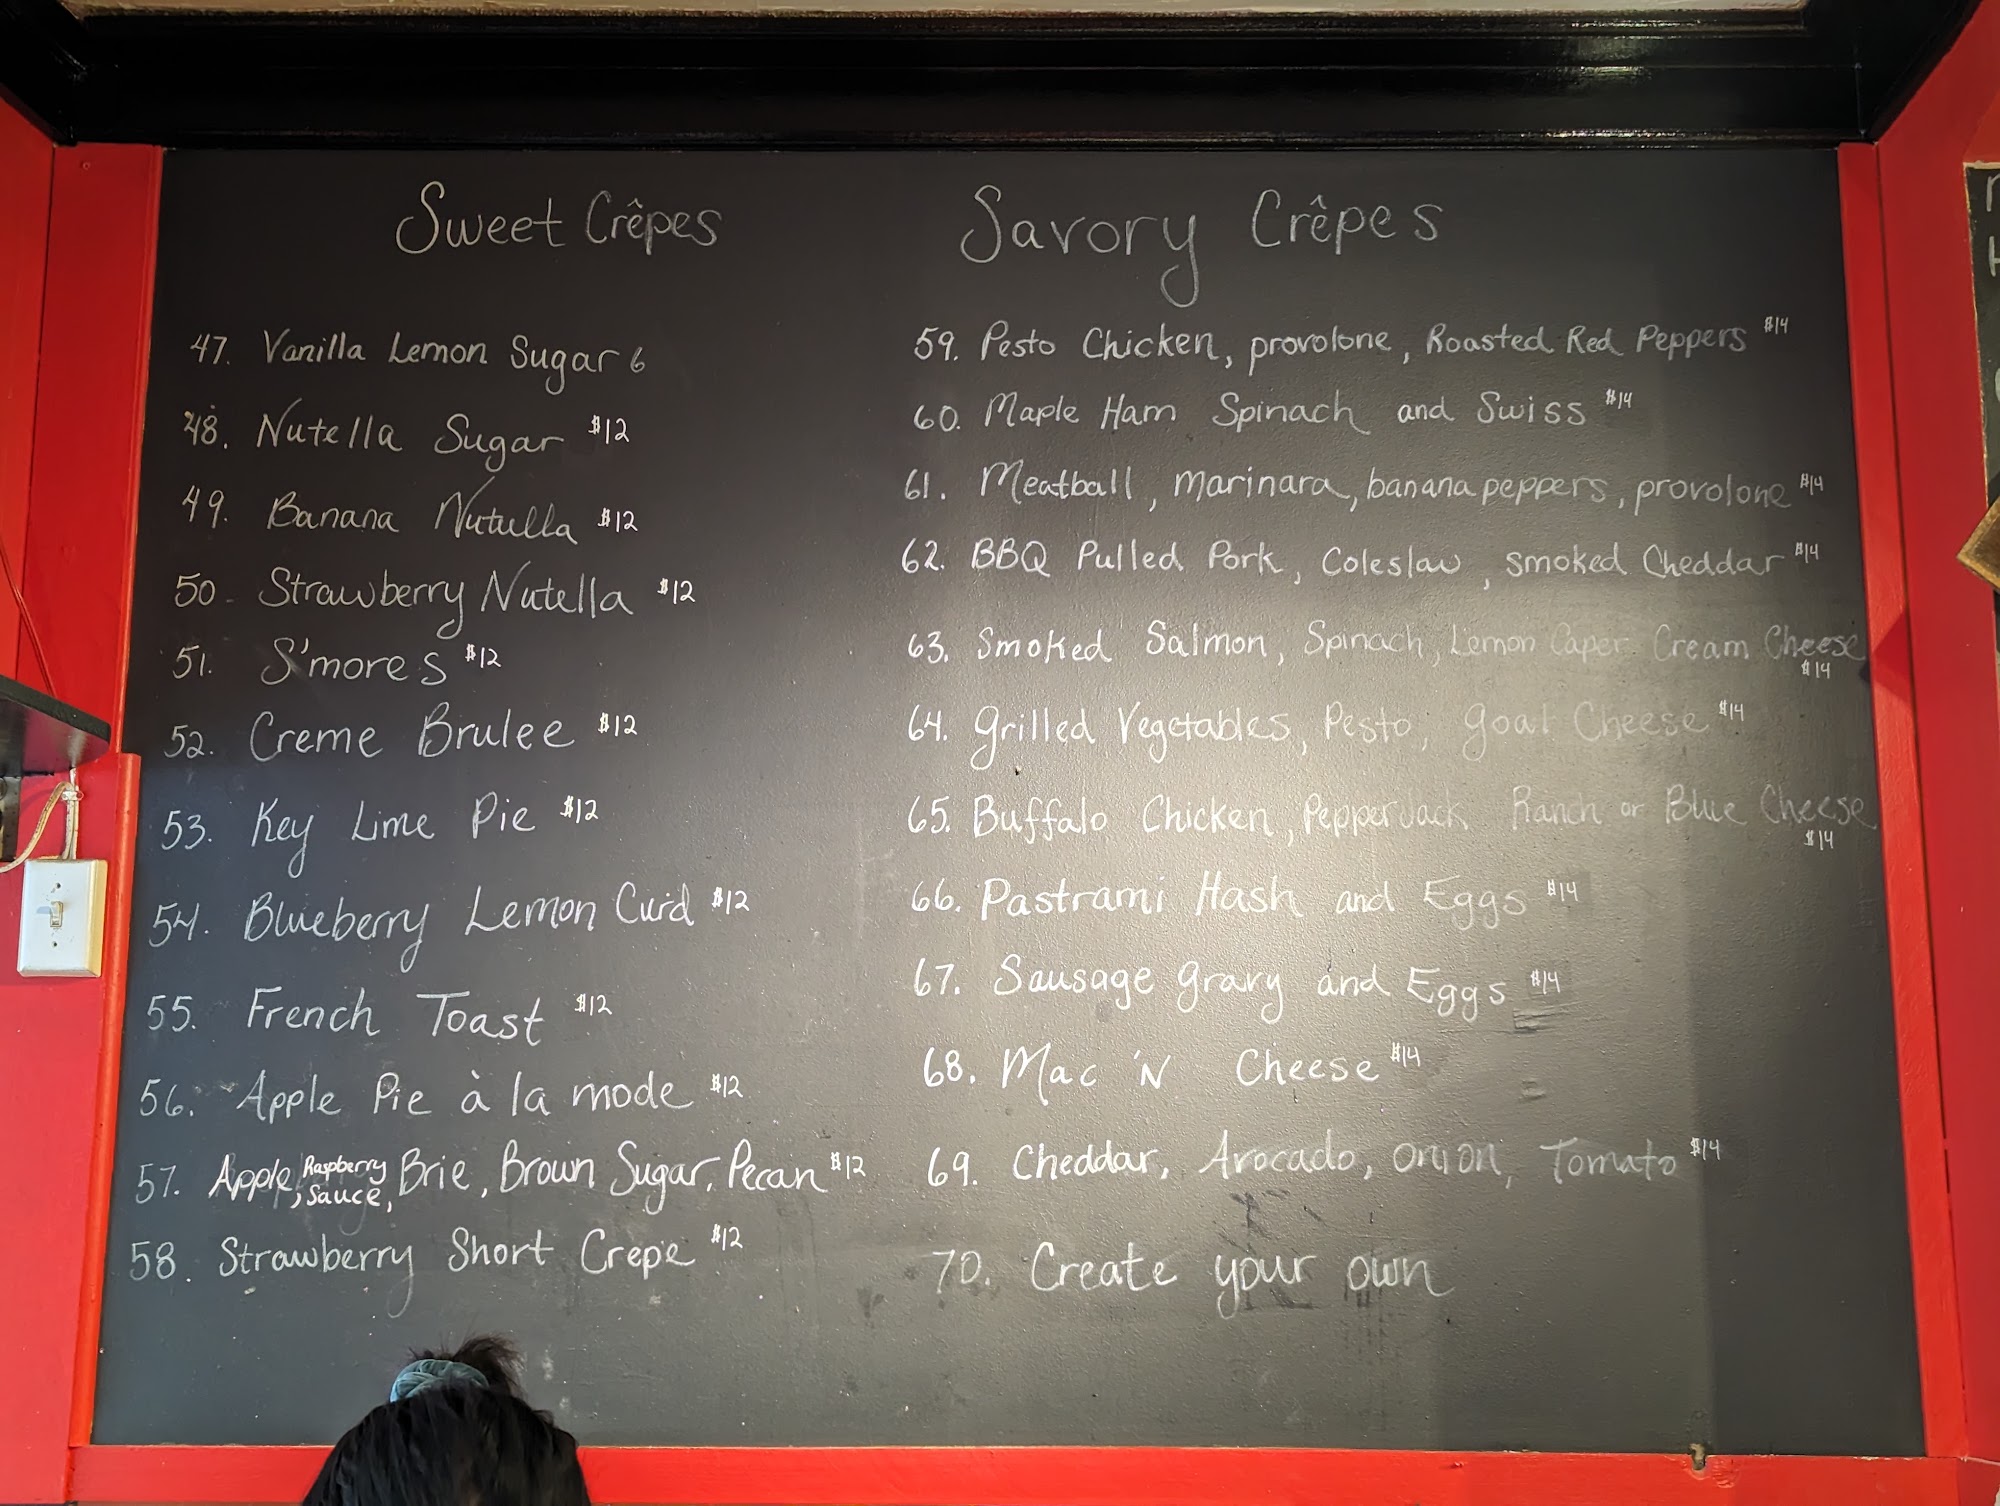 Sweet Crêpes
47. Vanilla Lemon Sugar 6
48. Nutella Sugar $12
49. Banana Nutulla $12
50. Strawberry Nutella $12
51. S'mores $12
52. Creme Brulee $12
53. Key Lime Pie $12
54. Blueberry Lemon Curd $12
55. French Toast $12
56. Apple Pie à la mode $12
57. Apple, Raspberry Sauce, Brie, Brown Sugar, Pecan $12
58. Strawberry Short Crepe $12
Savory Crêpes
59. Pesto Chicken, provolone, Roasted Red Peppers $14
60. Maple Ham Spinach and Swiss $14
61. Meatball, marinara, banana peppers, provolone $14
62. BBQ Pulled Pork, Coleslaw, smoked Cheddar $14
63. Smoked Salmon, Spinach, Lemon Caper Cream Cheese
$14
64. Grilled Vegetables, Pesto, goat Cheese $14
65. Buffalo Chicken, Pepper Jack Ranch or Blue Cheese
$14
66. Pastrami Hash and Eggs $14
67. Sausage gravy and Eggs $14
68. Mac 'N Cheese $14
69. Cheddar, Avocado, onion, Tomato $14
70. Create your own